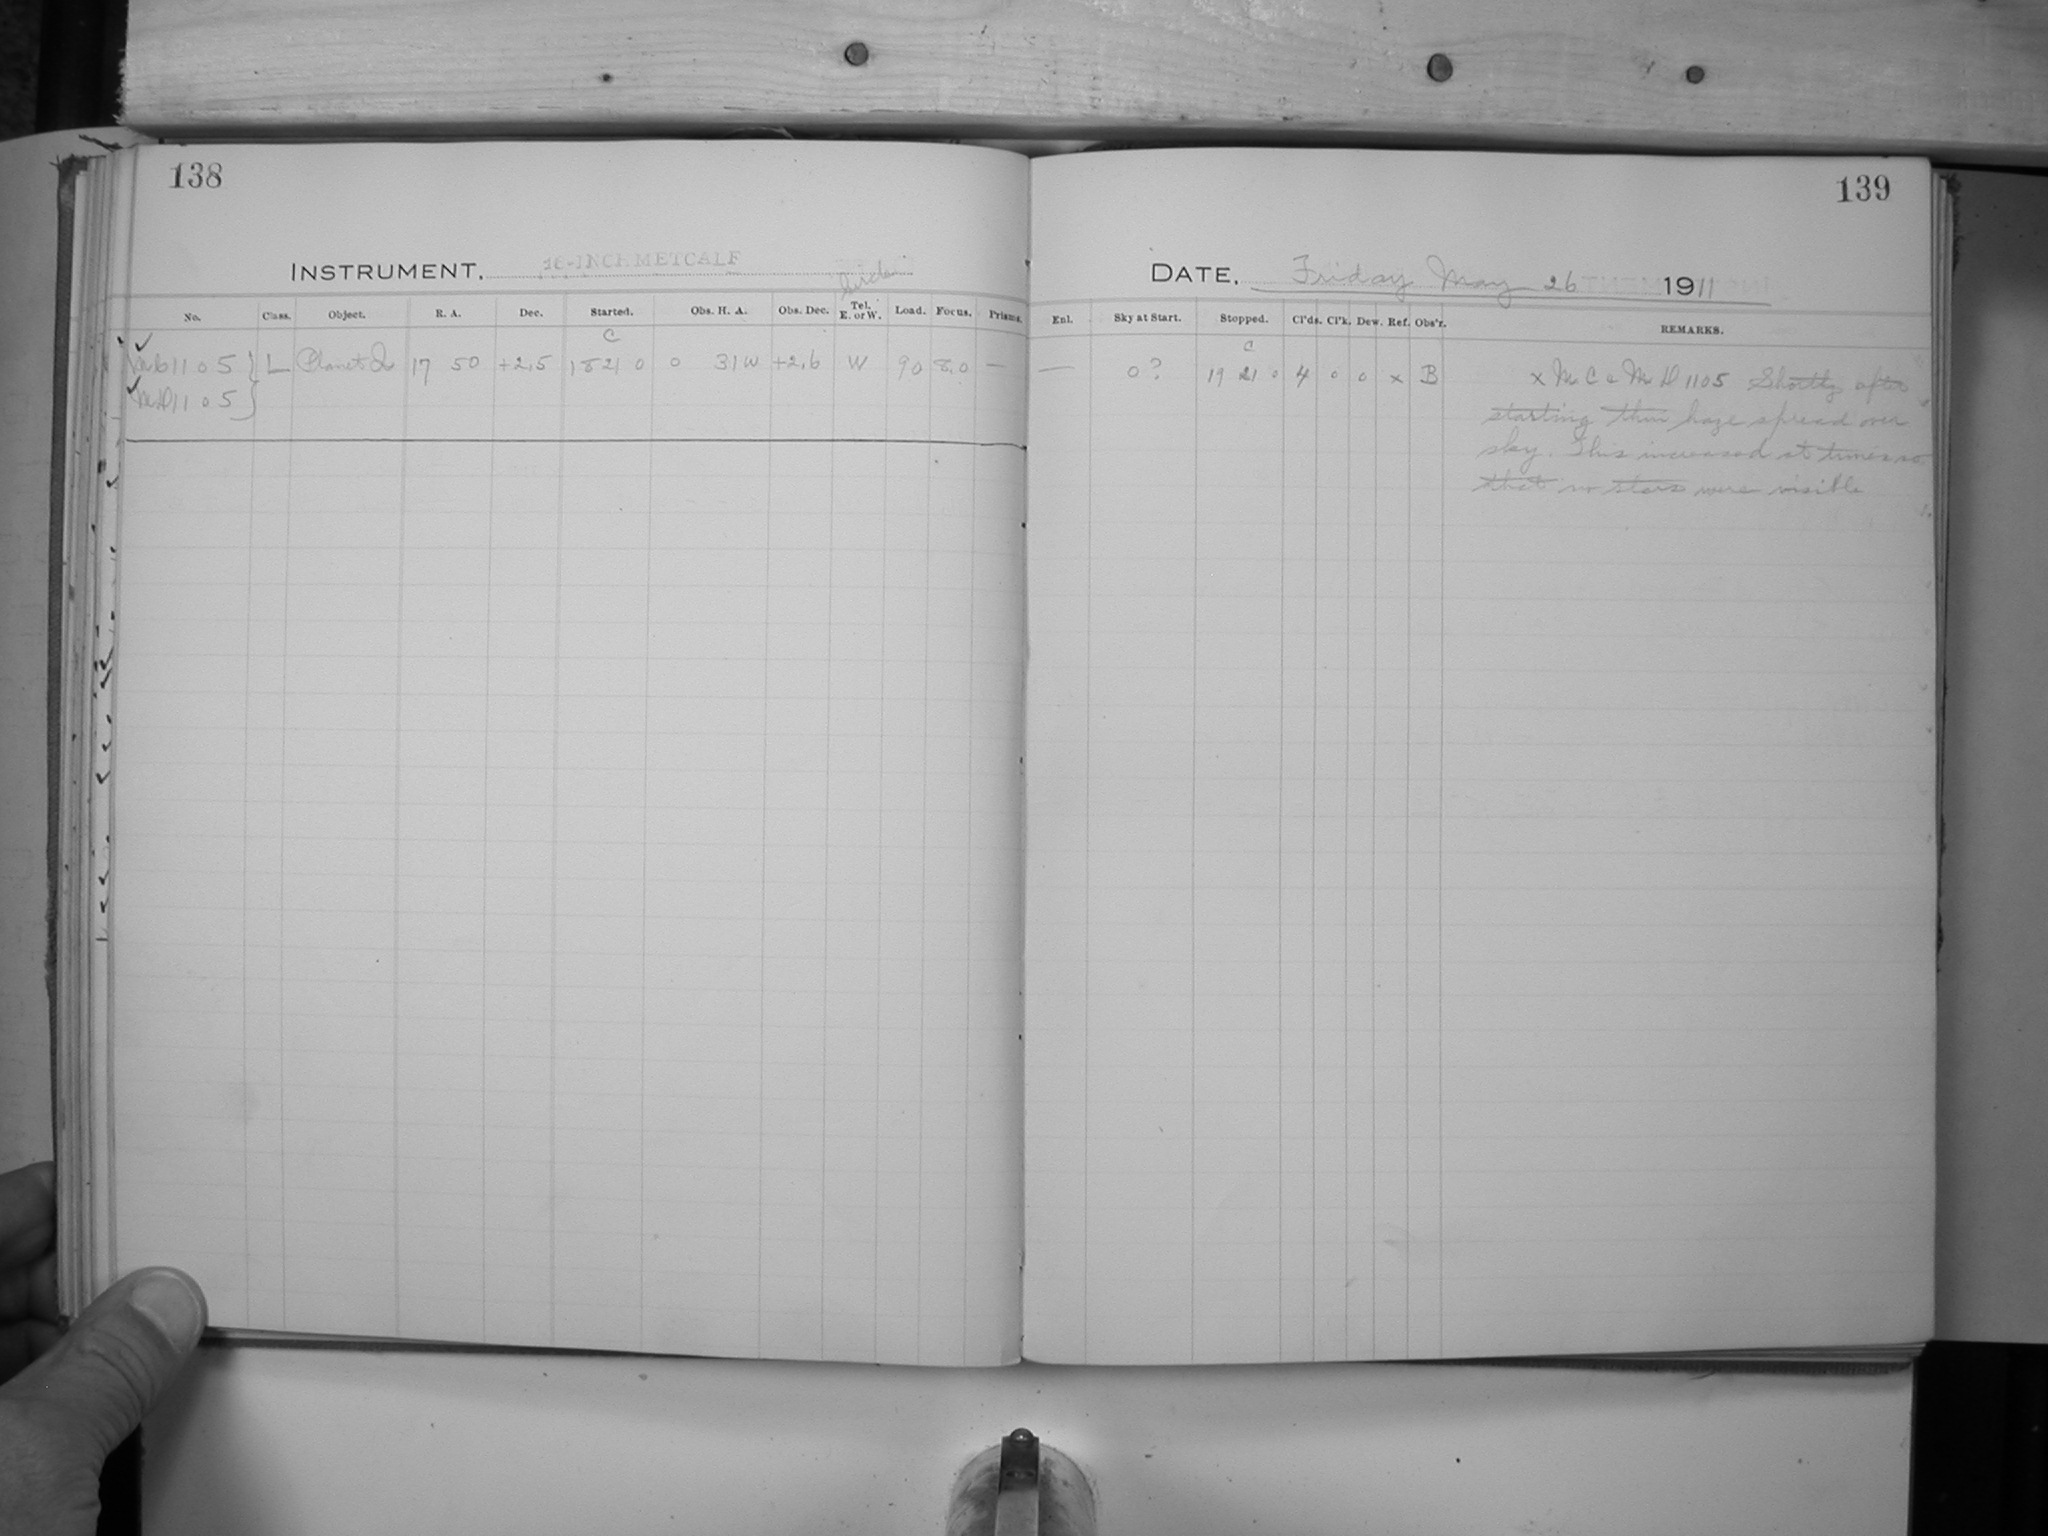 138
139
INSTRUMENT. 16-INCH METCALF
DATE. Friday May 26 1911
Circle
No. Class. Object. R. A. Dec. Started. Obs. H. A. Obs. Dec. Tel. E. or W. Load. Focus. Prisms.
Enl. Sky at Start. Stopped. Cl'ds. Cl'k. Dew. Ref. Obs'r. REMARKS.
C
C
✓ MC1105 } L Planet 17 50 +2.5 18 21 0 0 31W +2.6 W 90 8.0 —
— 0? 19 21 0 4 0 0 x B x MC & MD 1105 Shortly after
✓ MD1105 }
starting thin haze spread over
sky. This increased at times so
that no stars were visible